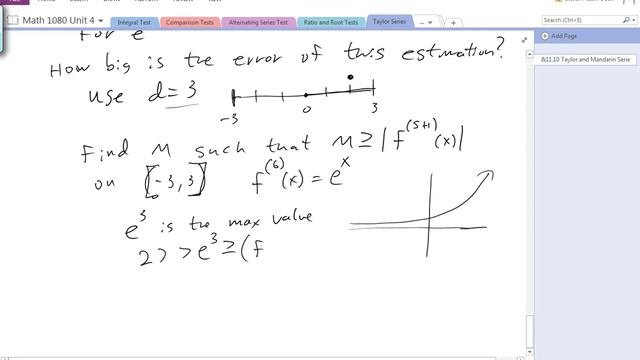 Math 1080 Unit 4
Integral Test
Comparison Tests
Alternating Series Test
Ratio and Root Tests
Taylor Series
+
Search (Ctrl+E)
Add Page
8|11.10 Taylor and Mandarin Serie
For e
How big is the error of this estimation?
use d=3
-3 0 3
Find M such that M ≥ |f^(5+1)(x)|
on [-3,3] f^(6)(x) = e^x
e^3 is the max value
27 > e^3 ≥ (f